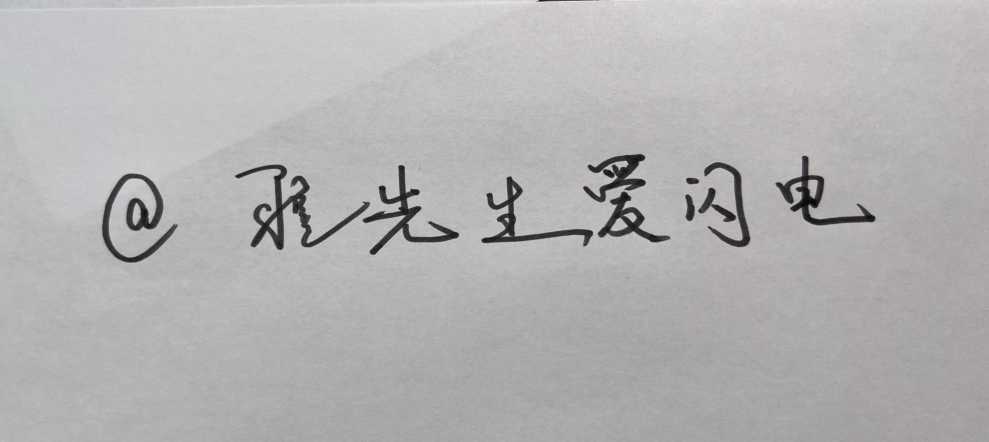 @雅先生爱闪电